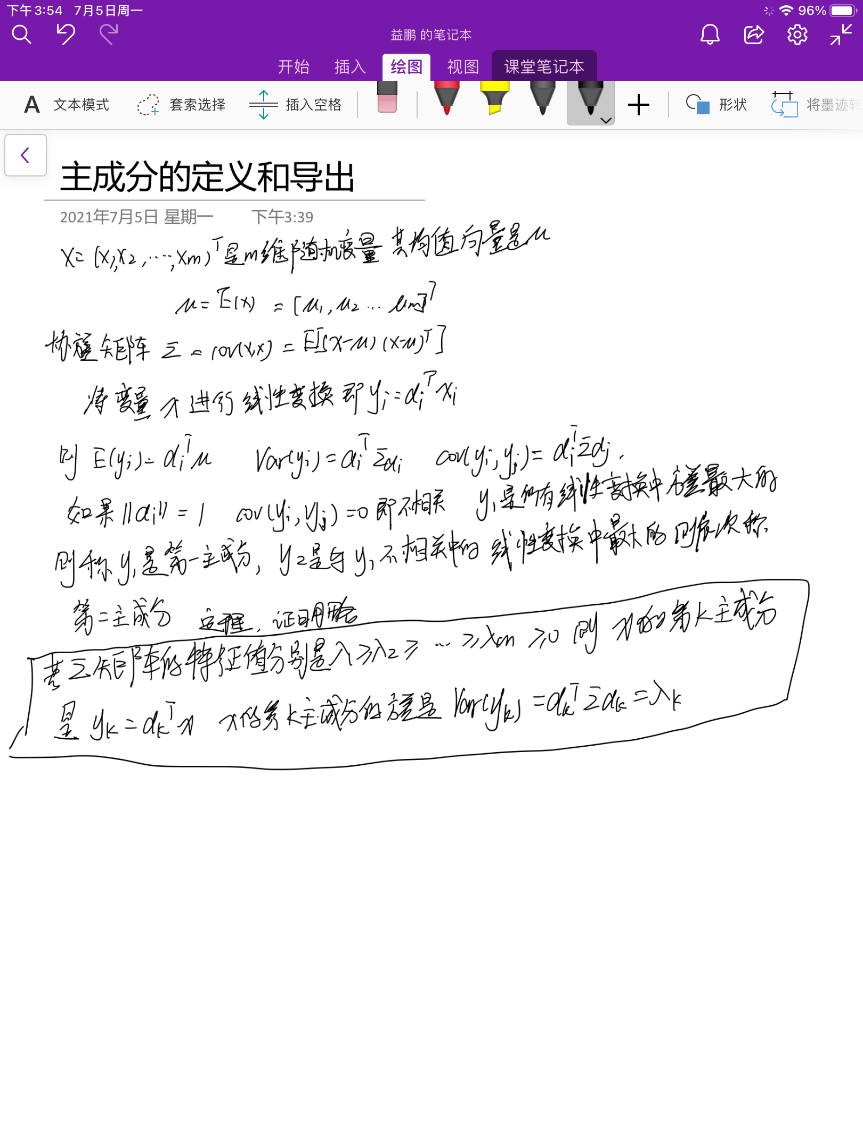 下午3:54 7月5日周一 96%
益鹏 的笔记本
开始 插入 绘图 视图 课堂笔记本
A 文本模式 套索选择 插入空格 形状 将墨迹转
主成分的定义和导出
2021年7月5日 星期一 下午3:39
x=(x₁,x₂,…,xm)ᵀ是m维随机变量 其均值向量是μ
μ=E(x)=[μ₁,μ₂…μm]ᵀ
协方差矩阵 Σ=cov(x,x)=E[(x-μ)(x-μ)ᵀ]
将变量x进行线性变换即yᵢ=αᵢᵀxᵢ
则 E(yᵢ)=αᵢᵀμ Var(yᵢ)=αᵢᵀΣαᵢ cov(yᵢ,yⱼ)=αᵢᵀΣαⱼ.
如果||αᵢ||=1 cov(yᵢ,yⱼ)=0即不相关 y₁是所有线性变换中方差最大的
则称y₁是第一主成分, y₂是与y₁不相关中的线性变换中最大的 则依次称
第二主成分 定理.证明略
若Σ矩阵的特征值分别是λ≥λ₂≥…≥λm≥0 则 x的第k主成分
是 yₖ=αₖᵀx x的第k主成分的方差是 Var(yₖ)=αₖᵀΣαₖ=λₖ